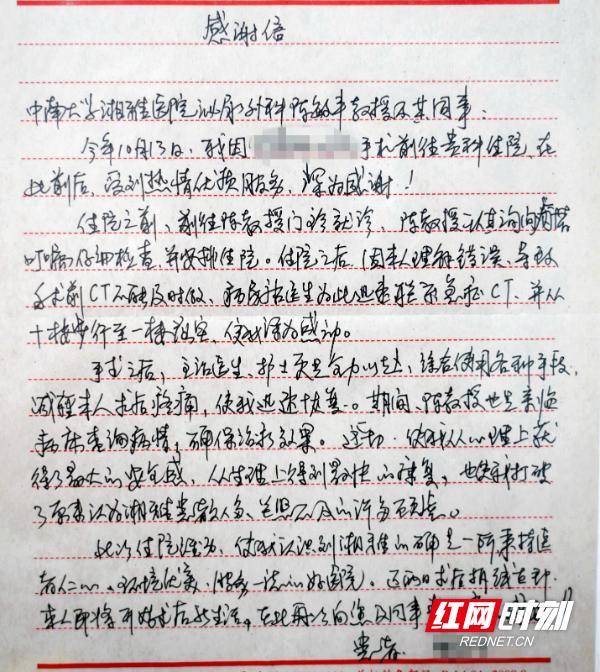 感谢信
中南大学湘雅医院泌尿外科陈敏丰教授及其同事：
今年10月13日，我因 手术前往贵科住院，在
此前后，受到热情优质服务，深为感谢！
住院之前，前往陈教授门诊就诊，陈教授认真询问病情
叮嘱仔细检查，并安排住院。住院之后，因本人理解错误，导致
手术前CT不能及时做，医生为此迅速联系急诊CT，并从
十楼步行至一楼，使我深为感动。
手术之后，主治医生、护士更是全力以赴，综合使用各种手段，
减轻本人术后疼痛，使我迅速恢复。期间，陈教授也是亲临
病床查询病情，确保治疗效果。这切，使我从心理上获
得了最大的安全感，从生理上得到最快的康复，也使我打破
了原来认为湘雅患者人多、照不及的许多顾虑。
此次住院经历，使我认识到湘雅的确是一所秉持医
者仁心、环境优美、服务一流的好医院。
本人即将开始术后新生活，在此再次向您及同事
患者
红网时刻
REDNET.CN